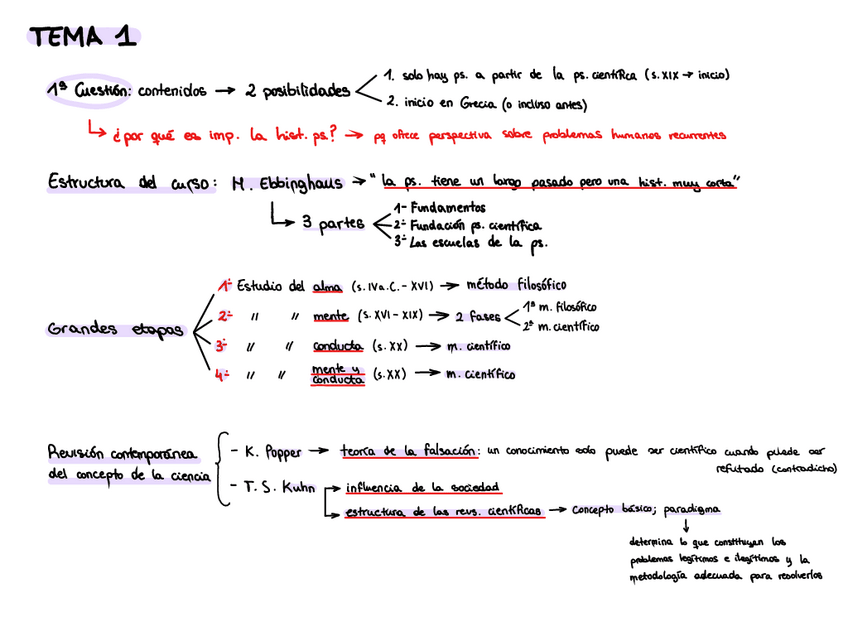 TEMA 1
1ª Cuestión: contenidos → 2 posibilidades
1. solo hay ps. a partir de la ps. científica (s. XIX → inicio)
2. inicio en Grecia (o incluso antes)
¿por qué es imp. la hist. ps.? → pq ofrece perspectiva sobre problemas humanos recurrentes
Estructura del curso: H. Ebbinghaus → "la ps. tiene un largo pasado pero una hist. muy corta"
3 partes
1- Fundamentos
2- Fundación ps. científica
3- Las escuelas de la ps.
Grandes etapas
1- Estudio del alma (s. IV a.C. - XVI) → método filosófico
2- " " mente (s. XVI - XIX) → 2 fases
1ª m. filosófico
2ª m. científico
3- " " conducta (s. XX) → m. científico
4- " " mente y
conducta (s. XX) → m. científico
Revisión contemporánea
del concepto de la ciencia
- K. Popper → teoría de la falsación: un conocimiento solo puede ser científico cuando puede ser
refutado (contradicho)
- T. S. Kuhn → influencia de la sociedad
→ estructura de las revs. científicas → concepto básico; paradigma
↓
determina lo que constituyen los
problemas legítimos e ilegítimos y la
metodología adecuada para resolverlos